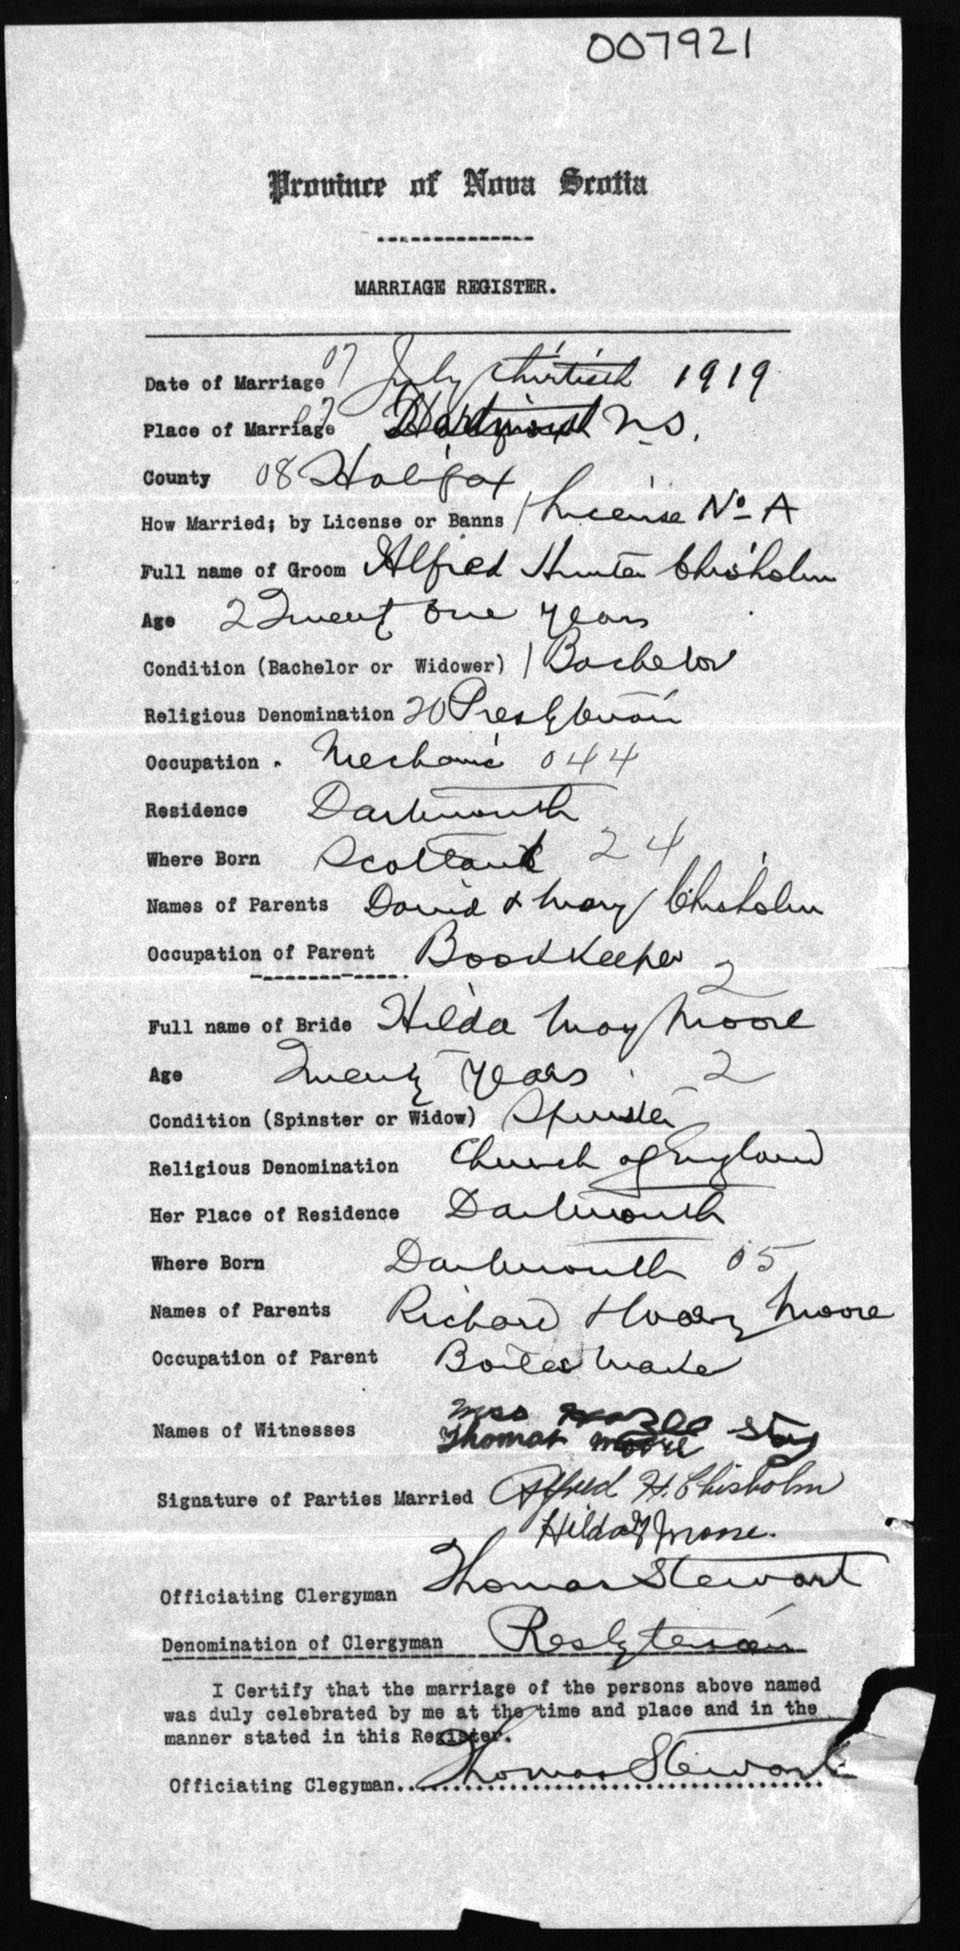 007921
Province of Nova Scotia
MARRIAGE REGISTER.
Date of Marriage 07 July thirtieth 1919
Place of Marriage Dartmouth N.S.
County 08 Halifax
How Married; by License or Banns / License No A
Full name of Groom Alfred Hunter Chisholm
Age 2 Twenty One Years
Condition (Bachelor or Widower) / Bachelor
Religious Denomination 20 Presbyterian
Occupation . Mechanic 044
Residence Dartmouth
Where Born Scotland 24
Names of Parents David & Mary Chisholm
Occupation of Parent Bookkeeper
2
Full name of Bride Hilda May Moore
Age Twenty Years 2
Condition (Spinster or Widow) Spinster
Religious Denomination Church of England
Her Place of Residence Dartmouth
Where Born Dartmouth 05
Names of Parents Richard & Mary Moore
Occupation of Parent Boiler Maker
Miss Stay
Names of Witnesses Thomas Moore
Signature of Parties Married Alfred H. Chisholm
Hilda M Moore.
Officiating Clergyman Thomas Stewart
Denomination of Clergyman Presbyterian
I Certify that the marriage of the persons above named
was duly celebrated by me at the time and place and in the
manner stated in this Register.
Officiating Clegyman.. Thomas Stewart